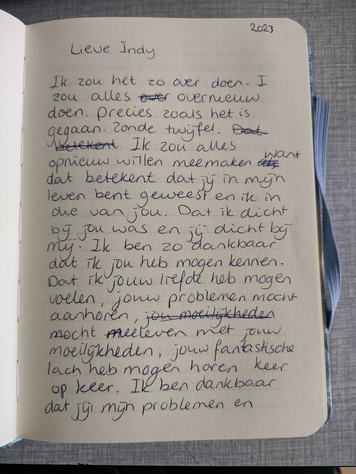 2023
Lieve Indy
Ik zou het zo over doen. I
zou alles over overnieuw
doen. Precies zoals het is
gegaan. zonde twijfel. Dat
betekent Ik zou alles
opnieuw willen meemaken want
dat betekent dat jij in mijn
leven bent geweest en ik in
die van jou. Dat ik dicht
bij jou was en jij dicht bij
mij. Ik ben zo dankbaar
dat ik jou heb mogen kennen.
Dat ik jouw liefde heb mogen
voelen, jouw problemen mocht
aanhoren, jou moeilijkheden
mocht meeleven met jouw
moeilijkheden, jouw fantastische
lach heb mogen horen keer
op keer. Ik ben dankbaar
dat jij mijn problemen en